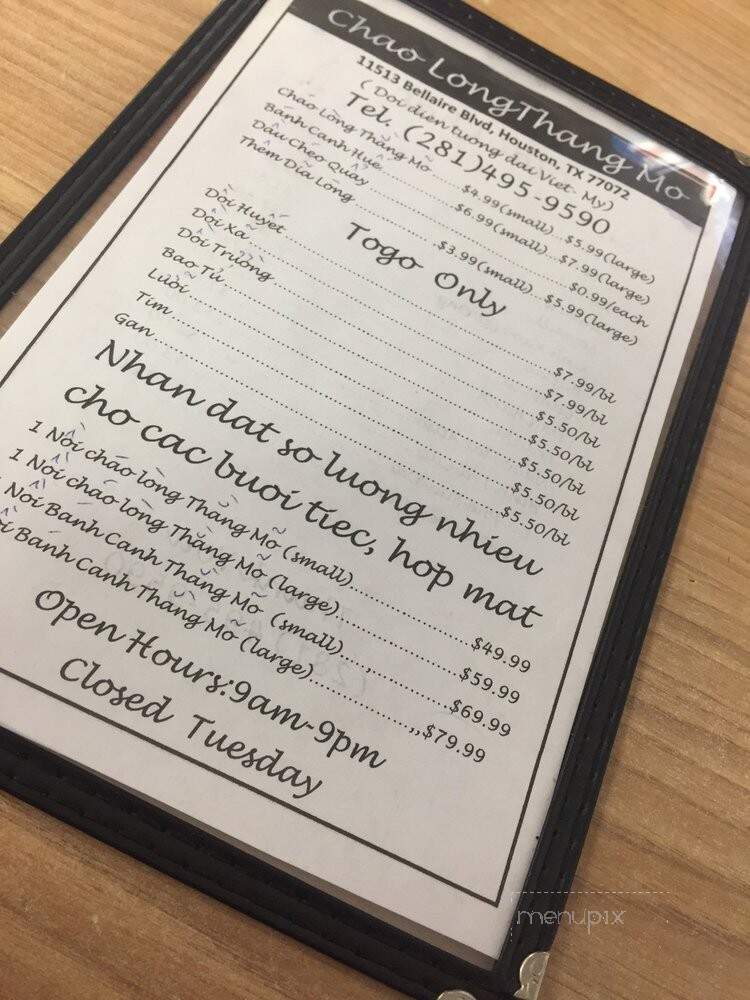 Chao LongThang Mo
11513 Bellaire Blvd, Houston, TX 77072
( Doi dien tuong dai Viet - My)
Tel. (281)495-9590
Cháo Lòng Thằng Mõ......$4.99(small)...$5.99(large)
Bánh Canh Huế......$6.99(small)...$7.99(large)
Dầu Cháo Quẩy......$0.99/each
Thêm Dĩa Lòng......$3.99(small)...$5.99(large)
Togo Only
Dồi Huyết......$7.99/bl
Dồi Xả......$7.99/bl
Dồi Trường......$5.50/bl
Bao Tử......$5.50/bl
Lưỡi......$5.50/bl
Tim......$5.50/bl
Gan......$5.50/bl
Nhan dat so luong nhieu
cho cac buoi tiec, hop mat
1 Nồi cháo lòng Thằng Mõ (small)......$49.99
1 Nồi cháo lòng Thằng Mõ (large)......$59.99
Nồi Bánh Canh Thằng Mõ (small)......$69.99
Bánh Canh Thằng Mõ (large)......$79.99
Open Hours:9am-9pm
Closed Tuesday
menupix